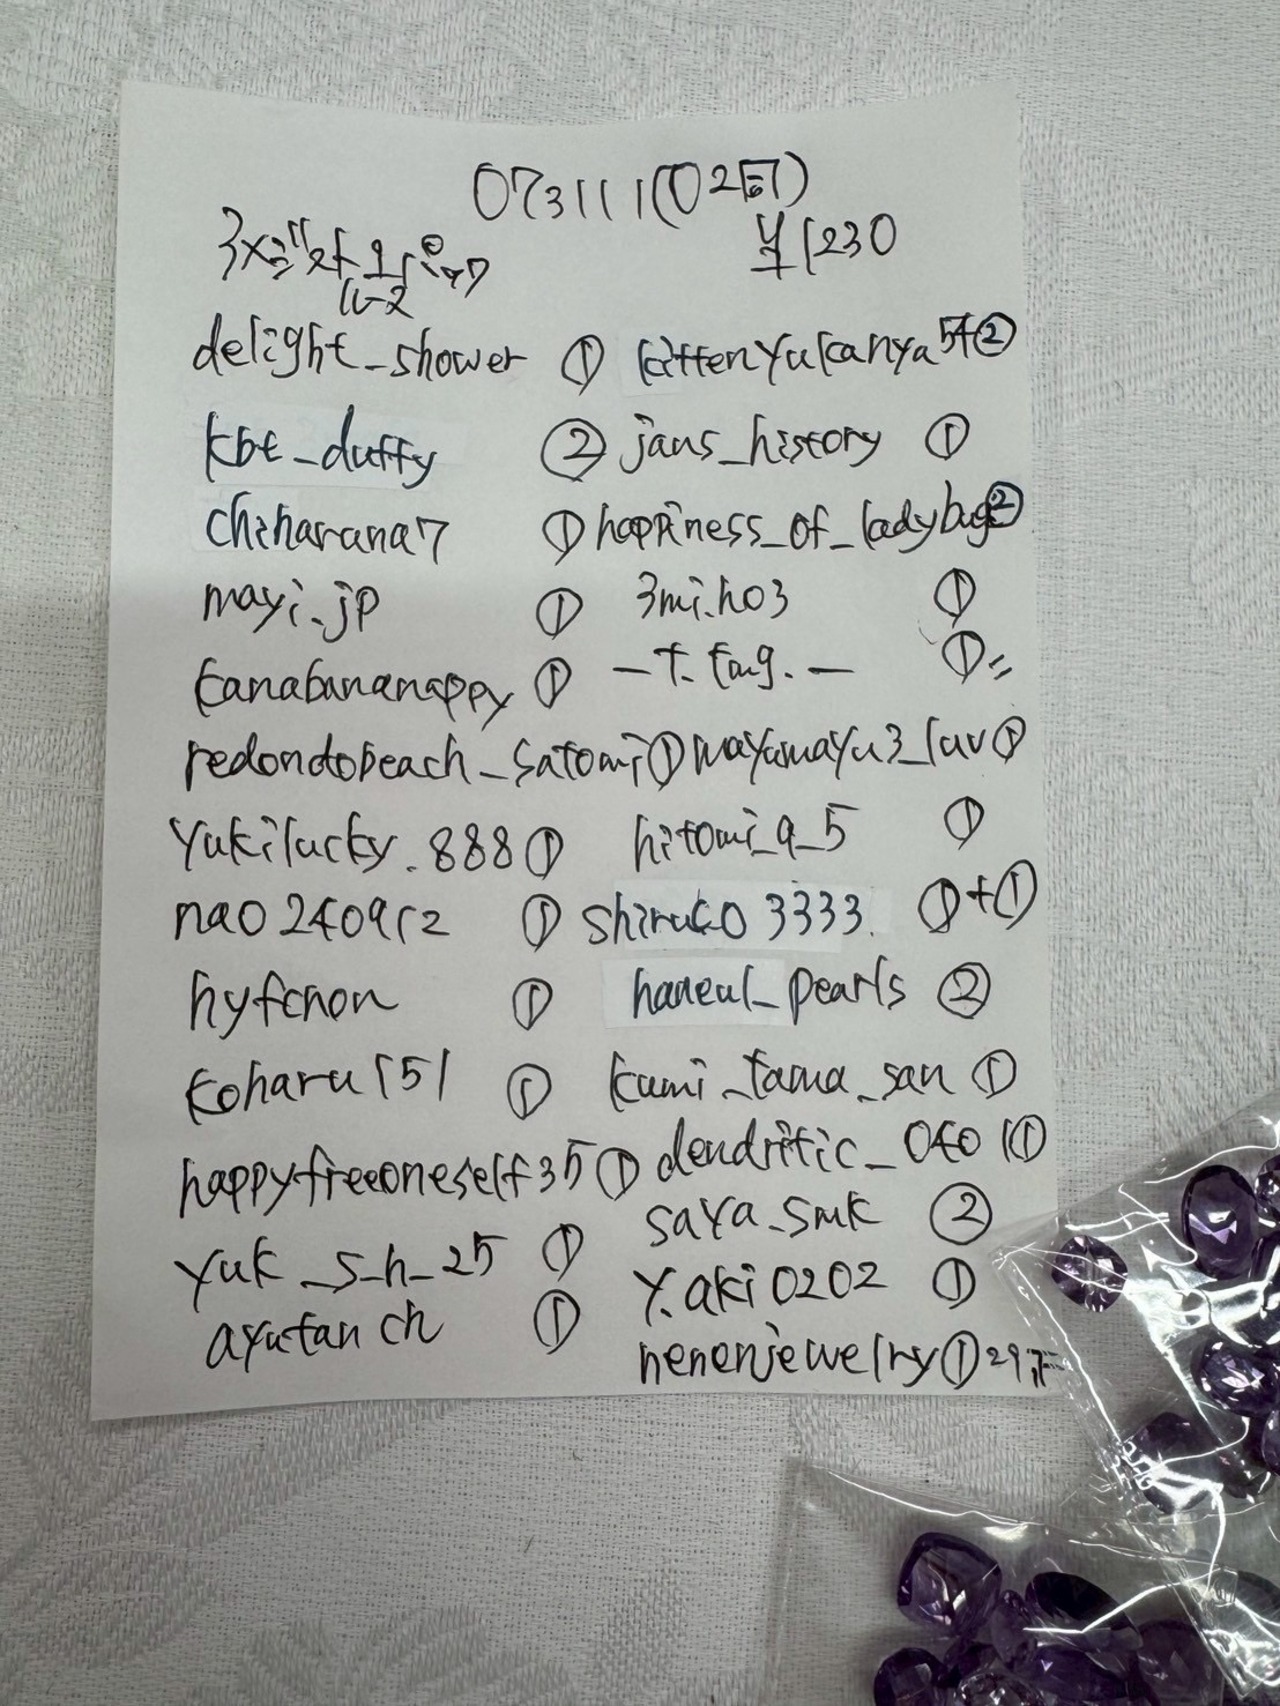 073111(02
¥1230
delight_shower ① kittenyukanya57②
kbt_duffy ② jans_history ①
chiharana7 ① happiness_of_ladybug②
mayi.jp ① 3mi.ho3 ①
tanabananappy ① _t.tmg._ ①
redondobeach_satomi① mayumayu3_luv①
yukilucky.888① hitomi_q_5 ①
nao240912 ① shiruko3333. ①+①
hyfcnon ① haneul_pearls ②
koharu151 ① kumi_tama_san ①
happyfreeoneself35① dendritic_0401①
yuk_s_h_25 ① saya_smk ②
ayutanch ① y.aki0202 ①
nenenjewelry①